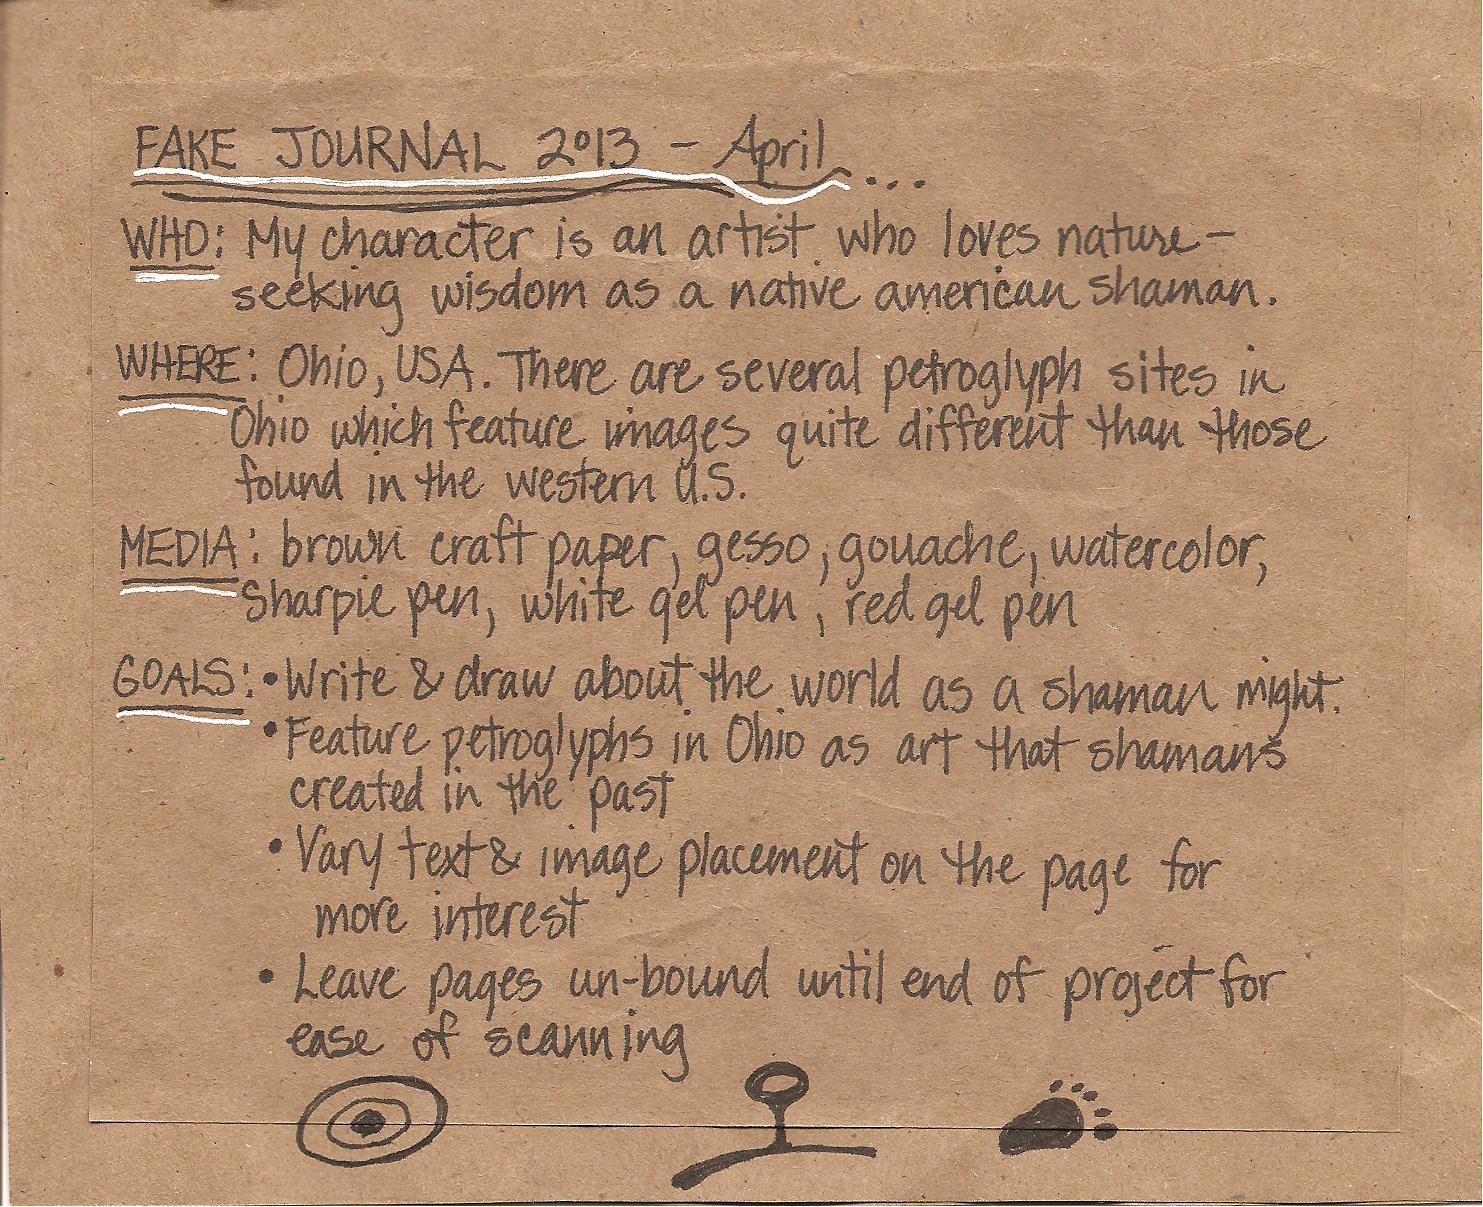 FAKE JOURNAL 2013 - April...
WHO: My character is an artist who loves nature-
seeking wisdom as a native american shaman.
WHERE: Ohio, USA. There are several petroglyph sites in
Ohio which feature images quite different than those
found in the western U.S.
MEDIA: brown craft paper, gesso, gouache, watercolor,
Sharpie pen, white gel pen, red gel pen
GOALS: • Write & draw about the world as a shaman might.
• Feature petroglyphs in Ohio as art that shamans
created in the past
• Vary text & image placement on the page for
more interest
• Leave pages un-bound until end of project for
ease of scanning